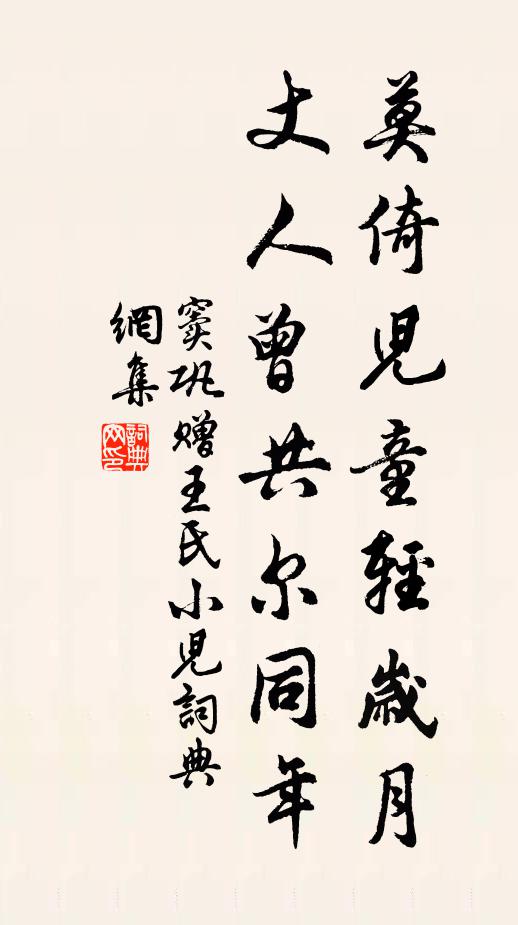 莫倚児童輕歲月
丈人曾共尔同年
竇巩贈王氏小児詞典
網集
詞典網印